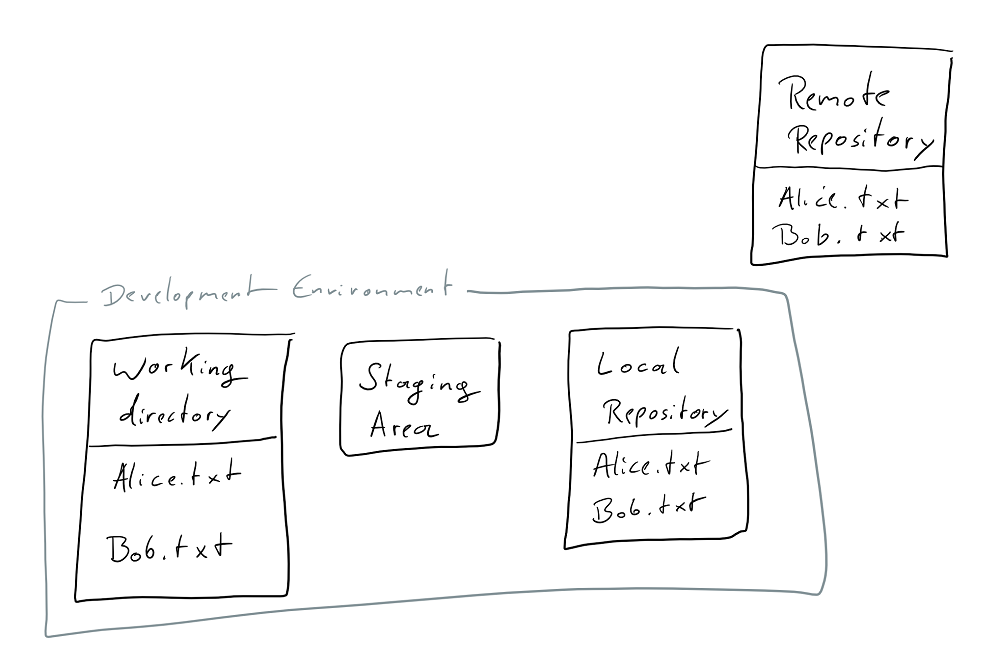 Remote
Repository
Alice.txt
Bob.txt
Development Environment
Working
directory
Alice.txt
Bob.txt
Staging
Area
Local
Repository
Alice.txt
Bob.txt